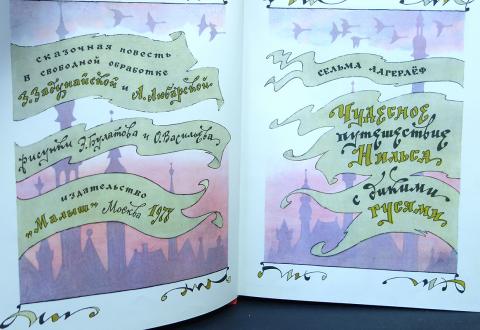 сказочная повесть
в свободной обработке
З. Задунайской и А. Любарской
рисунки Э. Булатова и О. Васильева
издательство
„Малыш" Москва 1977
СЕЛЬМА ЛАГЕРЛЁФ
Чудесное
путешествие
Нильса
с дикими
гусями